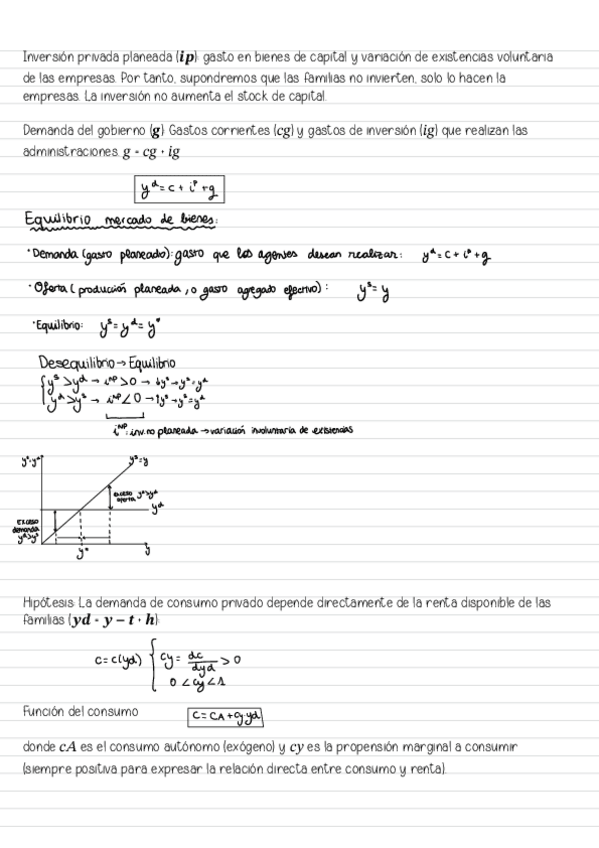 Inversión privada planeada (ip): gasto en bienes de capital y variación de existencias voluntaria
de las empresas. Por tanto, supondremos que las familias no invierten, solo lo hacen la
empresas. La inversión no aumenta el stock de capital.
Demanda del gobierno (g): Gastos corrientes (cg) y gastos de inversión (ig) que realizan las
administraciones. g = cg + ig
yᵈ = c + iᵖ + g
Equilibrio mercado de bienes:
· Demanda (gasto planeado): gasto que los agentes desean realizar: yᵈ = c + iᵖ + g
· Oferta (producción planeada, o gasto agregado efectivo): yˢ = y
· Equilibrio: yˢ = yᵈ = y*
Desequilibrio → Equilibrio
yˢ > yᵈ → iᴺᴾ > 0 → ↓yˢ → yˢ = yᵈ
yᵈ > yˢ → iᴺᴾ < 0 → ↑yˢ → yˢ = yᵈ
iᴺᴾ = inv. no planeada → variación involuntaria de existencias
yˢ, yᵈ
yˢ = y
exceso
oferta yˢ > yᵈ
yᵈ
exceso
demanda
yᵈ > yˢ
y*
y
Hipótesis: La demanda de consumo privado depende directamente de la renta disponible de las
familias (yd = y − t + h):
c = c(yd) { cy = dc/dyd > 0
0 < cy < 1
Función del consumo
c = cA + cy yd
donde cA es el consumo autónomo (exógeno) y cy es la propensión marginal a consumir
(siempre positiva para expresar la relación directa entre consumo y renta).